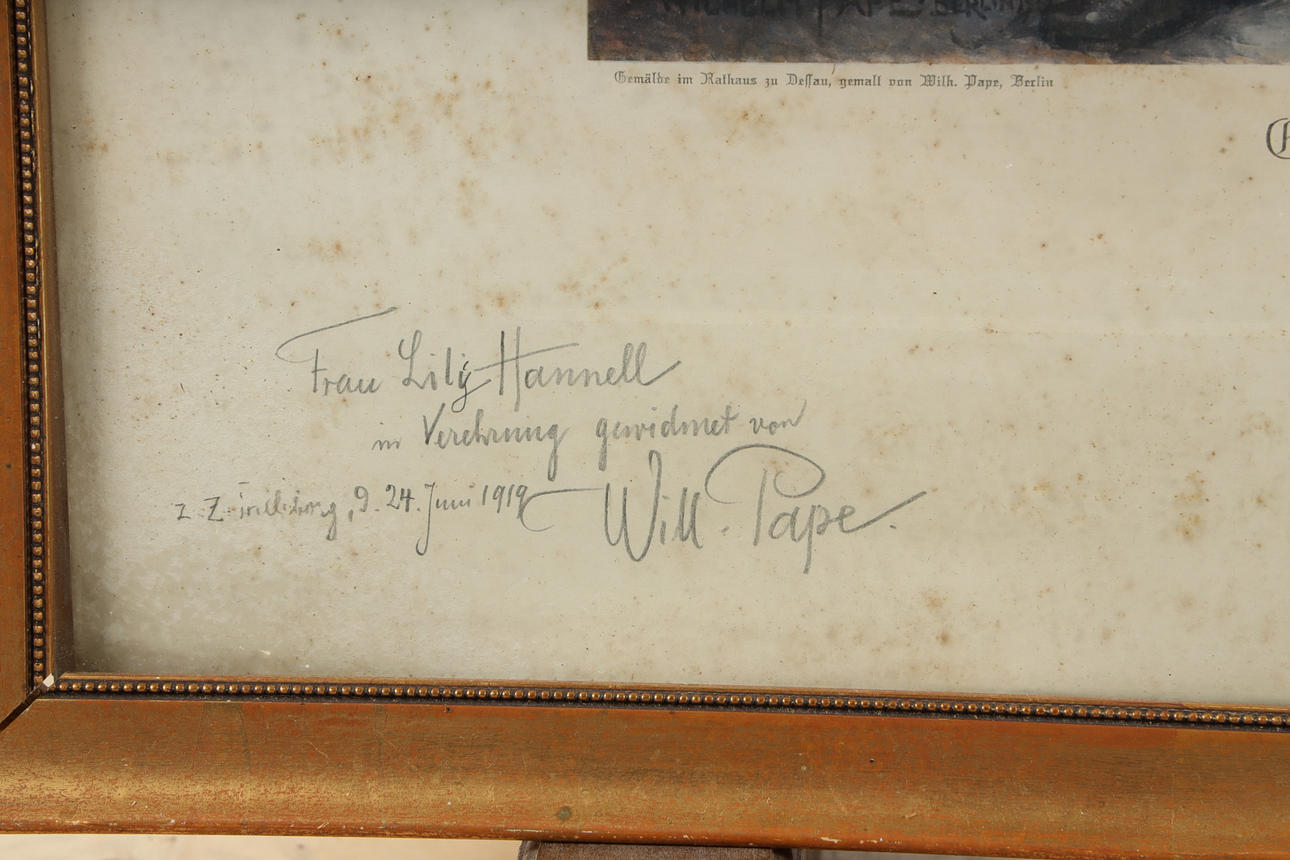 WILHELM PAPE, BERLIN
Gemälde im Rathaus zu Dessau, gemalt von Wilh. Pape, Berlin
Frau Lily Hannell
in Verehrung gewidmet von
z. Z. d. 24. Juni 1919 Will. Pape.